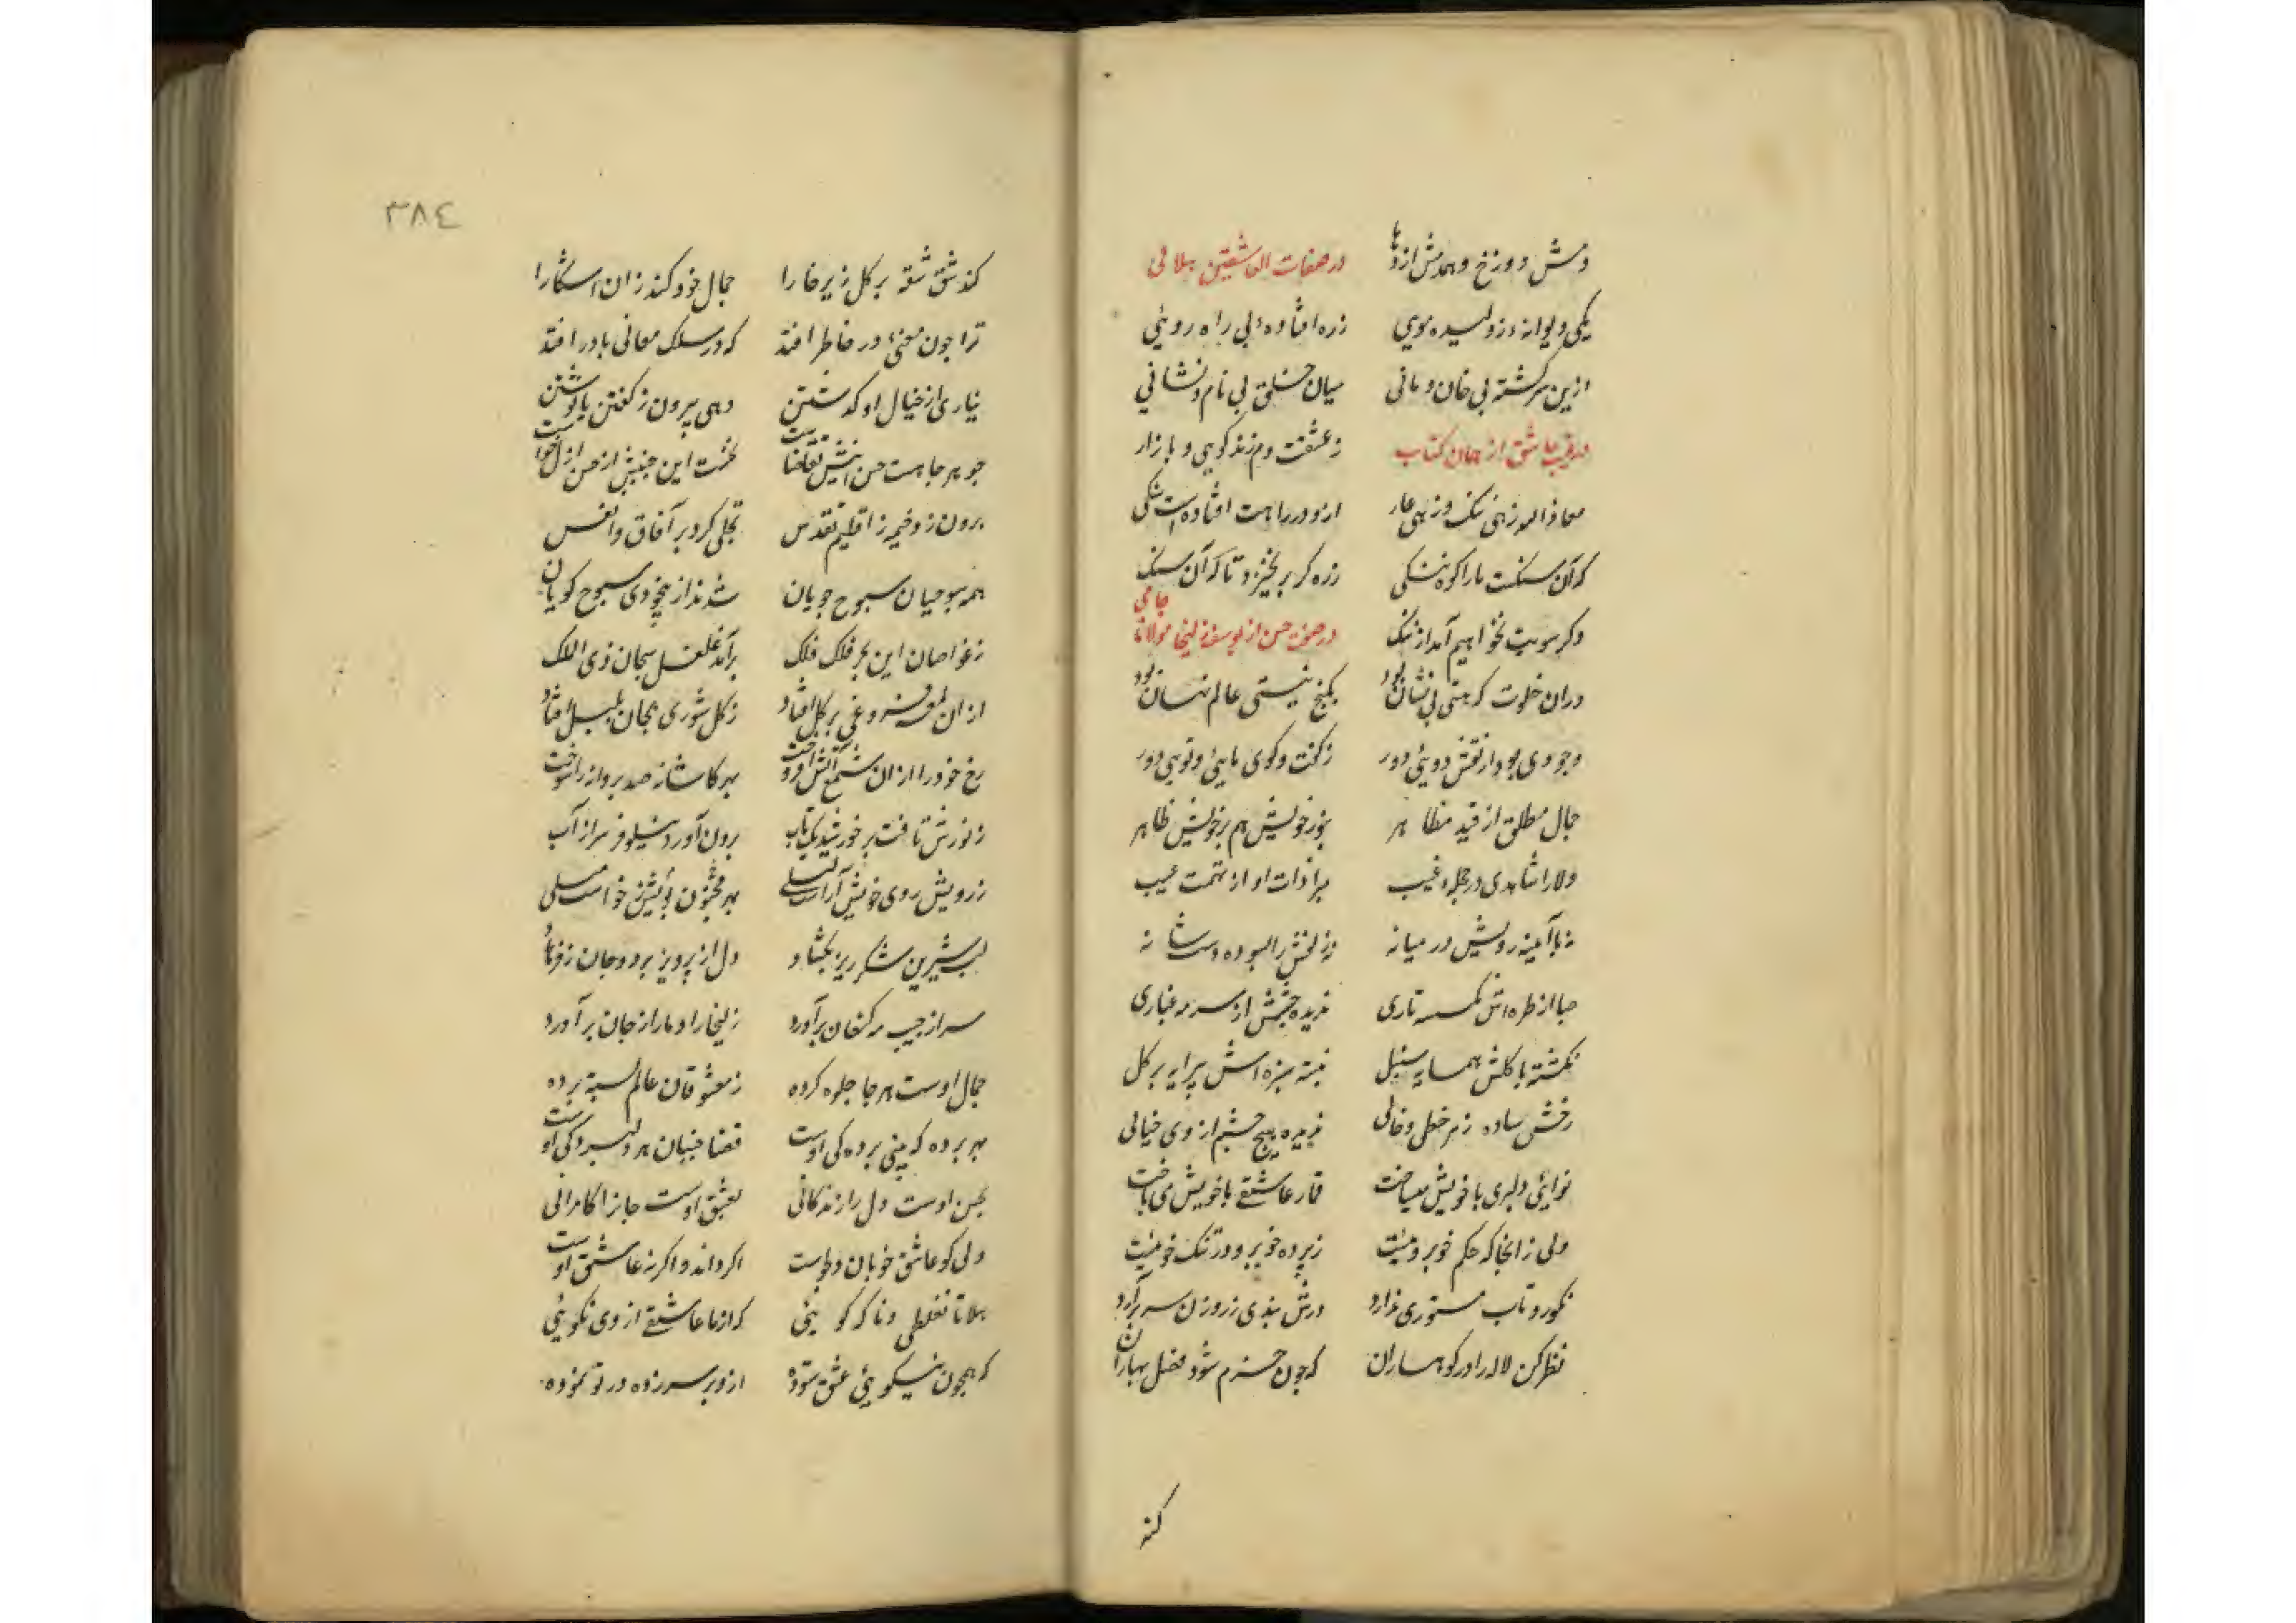 دمش دوزخ و همدمش اژدها در صفات العاشقین هلالی
یکی دیوانه ژولیده موی زره افتاده بی راه رویی
ازین سرکشته بی خان و مانی میان خلق بی نام و نشانی
در رقیب عاشق از همان کتاب ز عشقت دم زند کویی و بازار
معاذ الله زهی ننک و زهی عار ازو در راهت افتاده است سنکی
که آن سنکست ما را کوه سنکی زره کر برنخیزد تا که آن سنک
وکر سویت نخواهیم آمد از ننک در صفت حسن از یوسف زلیخا مولانا جامی
دران خلوت که هستی بی نشان بود بکنج نیستی عالم نهان بود
وجودی بود از نقش دویی دور ز کفت و کوی مایی و تویی دور
جمال مطلق از قید مظاهر بنور خویش هم بر خویش ظاهر
دلارا شاهدی در حجله غیب مبرا ذات او از تهمت عیب
نه با آیینه رویش در میانه نه زلفش را بسوده دست شانه
صبا از طره اش نکسسته تاری ندیده چشمش از سرمه غباری
نکشته با کلش همسایه سنبل نبسته سبزه اش پیرایه بر کل
رخش ساده ز هر خطی و خالی ندیده هیچ چشم از وی خیالی
نوایی دلبری با خویش میساخت قمار عاشقی با خویش می باخت
ولی زانجا که حکم خوبروییست ز پرده خوبرو در تنک خوییست
نکورو تاب مستوری ندارد درش بندی ز روزن سر برآرد
نظر کن لاله را در کوهساران که چون خرم شود فصل بهاران
کند
۳۸٤
کند شق شقه بر کل زیر خارا جمال خود کند زان آشکارا
ترا چون معنیء در خاطر افتد که در سلک معانی نادر افتد
نیاری از خیال او کذشتن دهی بیرون ز کفتن یا نوشتن
چو هر جا هست حسن اینش تقاضاست نخست این جنبش از حسن ازل خواست
برون زد خیمه ز اقلیم تقدس تجلی کرد بر آفاق و انفس
همه سبوحیان سبوح جویان شدند از بیخودی سبوح کویان
ز غواصان این بحر فلک فلک برآمد غلغل سبحان ذی الملک
ازان لمعه فروغی بر کل افتاد ز کل شوری بجان بلبل افتاد
رخ خود را ازان شمع آتش افروخت بهر کاشانه صد پروانه را سوخت
ز نورش تافت بر خورشید یک تاب برون آورد نیلوفر سر از آب
ز رویش روی خویش آراست لیلی بهر مجنون ز مویش خواست میلی
لب شیرین شکر ریز بکشاد دل از پرویز برد و جان ز فرهاد
سر از جیب مه کنعان برآورد زلیخا را دمار از جان برآورد
جمال اوست هر جا جلوه کرده ز معشوقان عالم بسته پرده
بهر پرده که بینی پرده کی اوست قضا جنبان هر دلبردکی اوست
بحسن اوست دل را زندکانی بعشق اوست جان را کامرانی
دلی کو عاشق خوبان دلجوست اکر داند و اکر نه عاشق اوست
هلا تا نغلطی و ناکه کویی که از ما عاشقی از وی نکویی
که همچون نیکویی عشق ستوده ازو بر سر زده در تو نموده